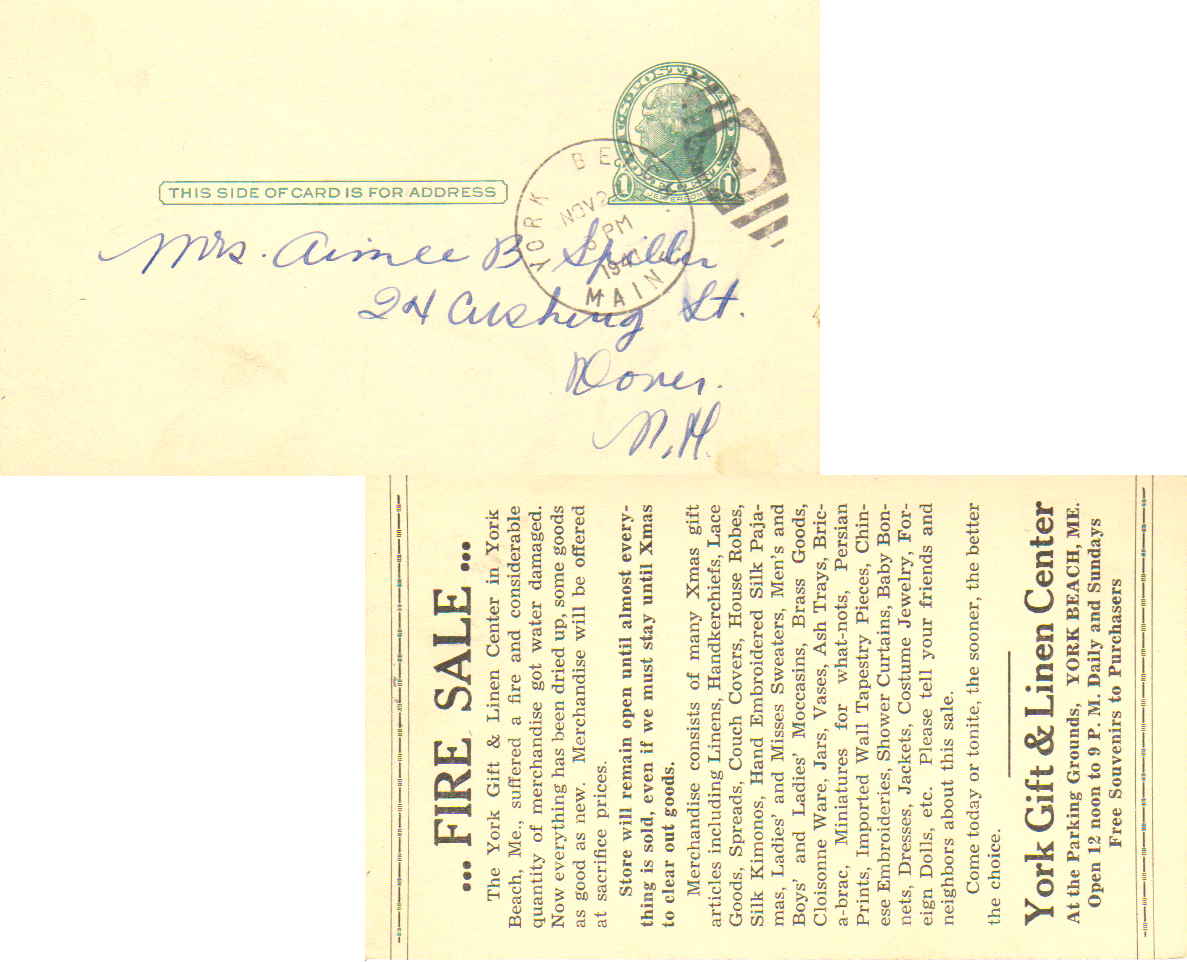 THIS SIDE OF CARD IS FOR ADDRESS
1 JEFFERSON 1
YORK BE
NOV 2
PM
194
MAIN
Mrs. Aimee B Spiller
24 Cushing St.
Dover.
N.H.
... FIRE SALE ...
The York Gift & Linen Center in York
Beach, Me., suffered a fire and considerable
quantity of merchandise got water damaged.
Now everything has been dried up, some goods
as good as new. Merchandise will be offered
at sacrifice prices.
Store will remain open until almost every-
thing is sold, even if we must stay until Xmas
to clear out goods.
Merchandise consists of many Xmas gift
articles including Linens, Handkerchiefs, Lace
Goods, Spreads, Couch Covers, House Robes,
Silk Kimonos, Hand Embroidered Silk Paja-
mas, Ladies' and Misses Sweaters, Men's and
Boys' and Ladies' Moccasins, Brass Goods,
Cloisonne Ware, Jars, Vases, Ash Trays, Bric-
a-brac, Miniatures for what-nots, Persian
Prints, Imported Wall Tapestry Pieces, Chin-
ese Embroideries, Shower Curtains, Baby Bon-
nets, Dresses, Jackets, Costume Jewelry, For-
eign Dolls, etc. Please tell your friends and
neighbors about this sale.
Come today or tonite, the sooner, the better
the choice.
York Gift & Linen Center
At the Parking Grounds, YORK BEACH, ME.
Open 12 noon to 9 P. M. Daily and Sundays
Free Souvenirs to Purchasers